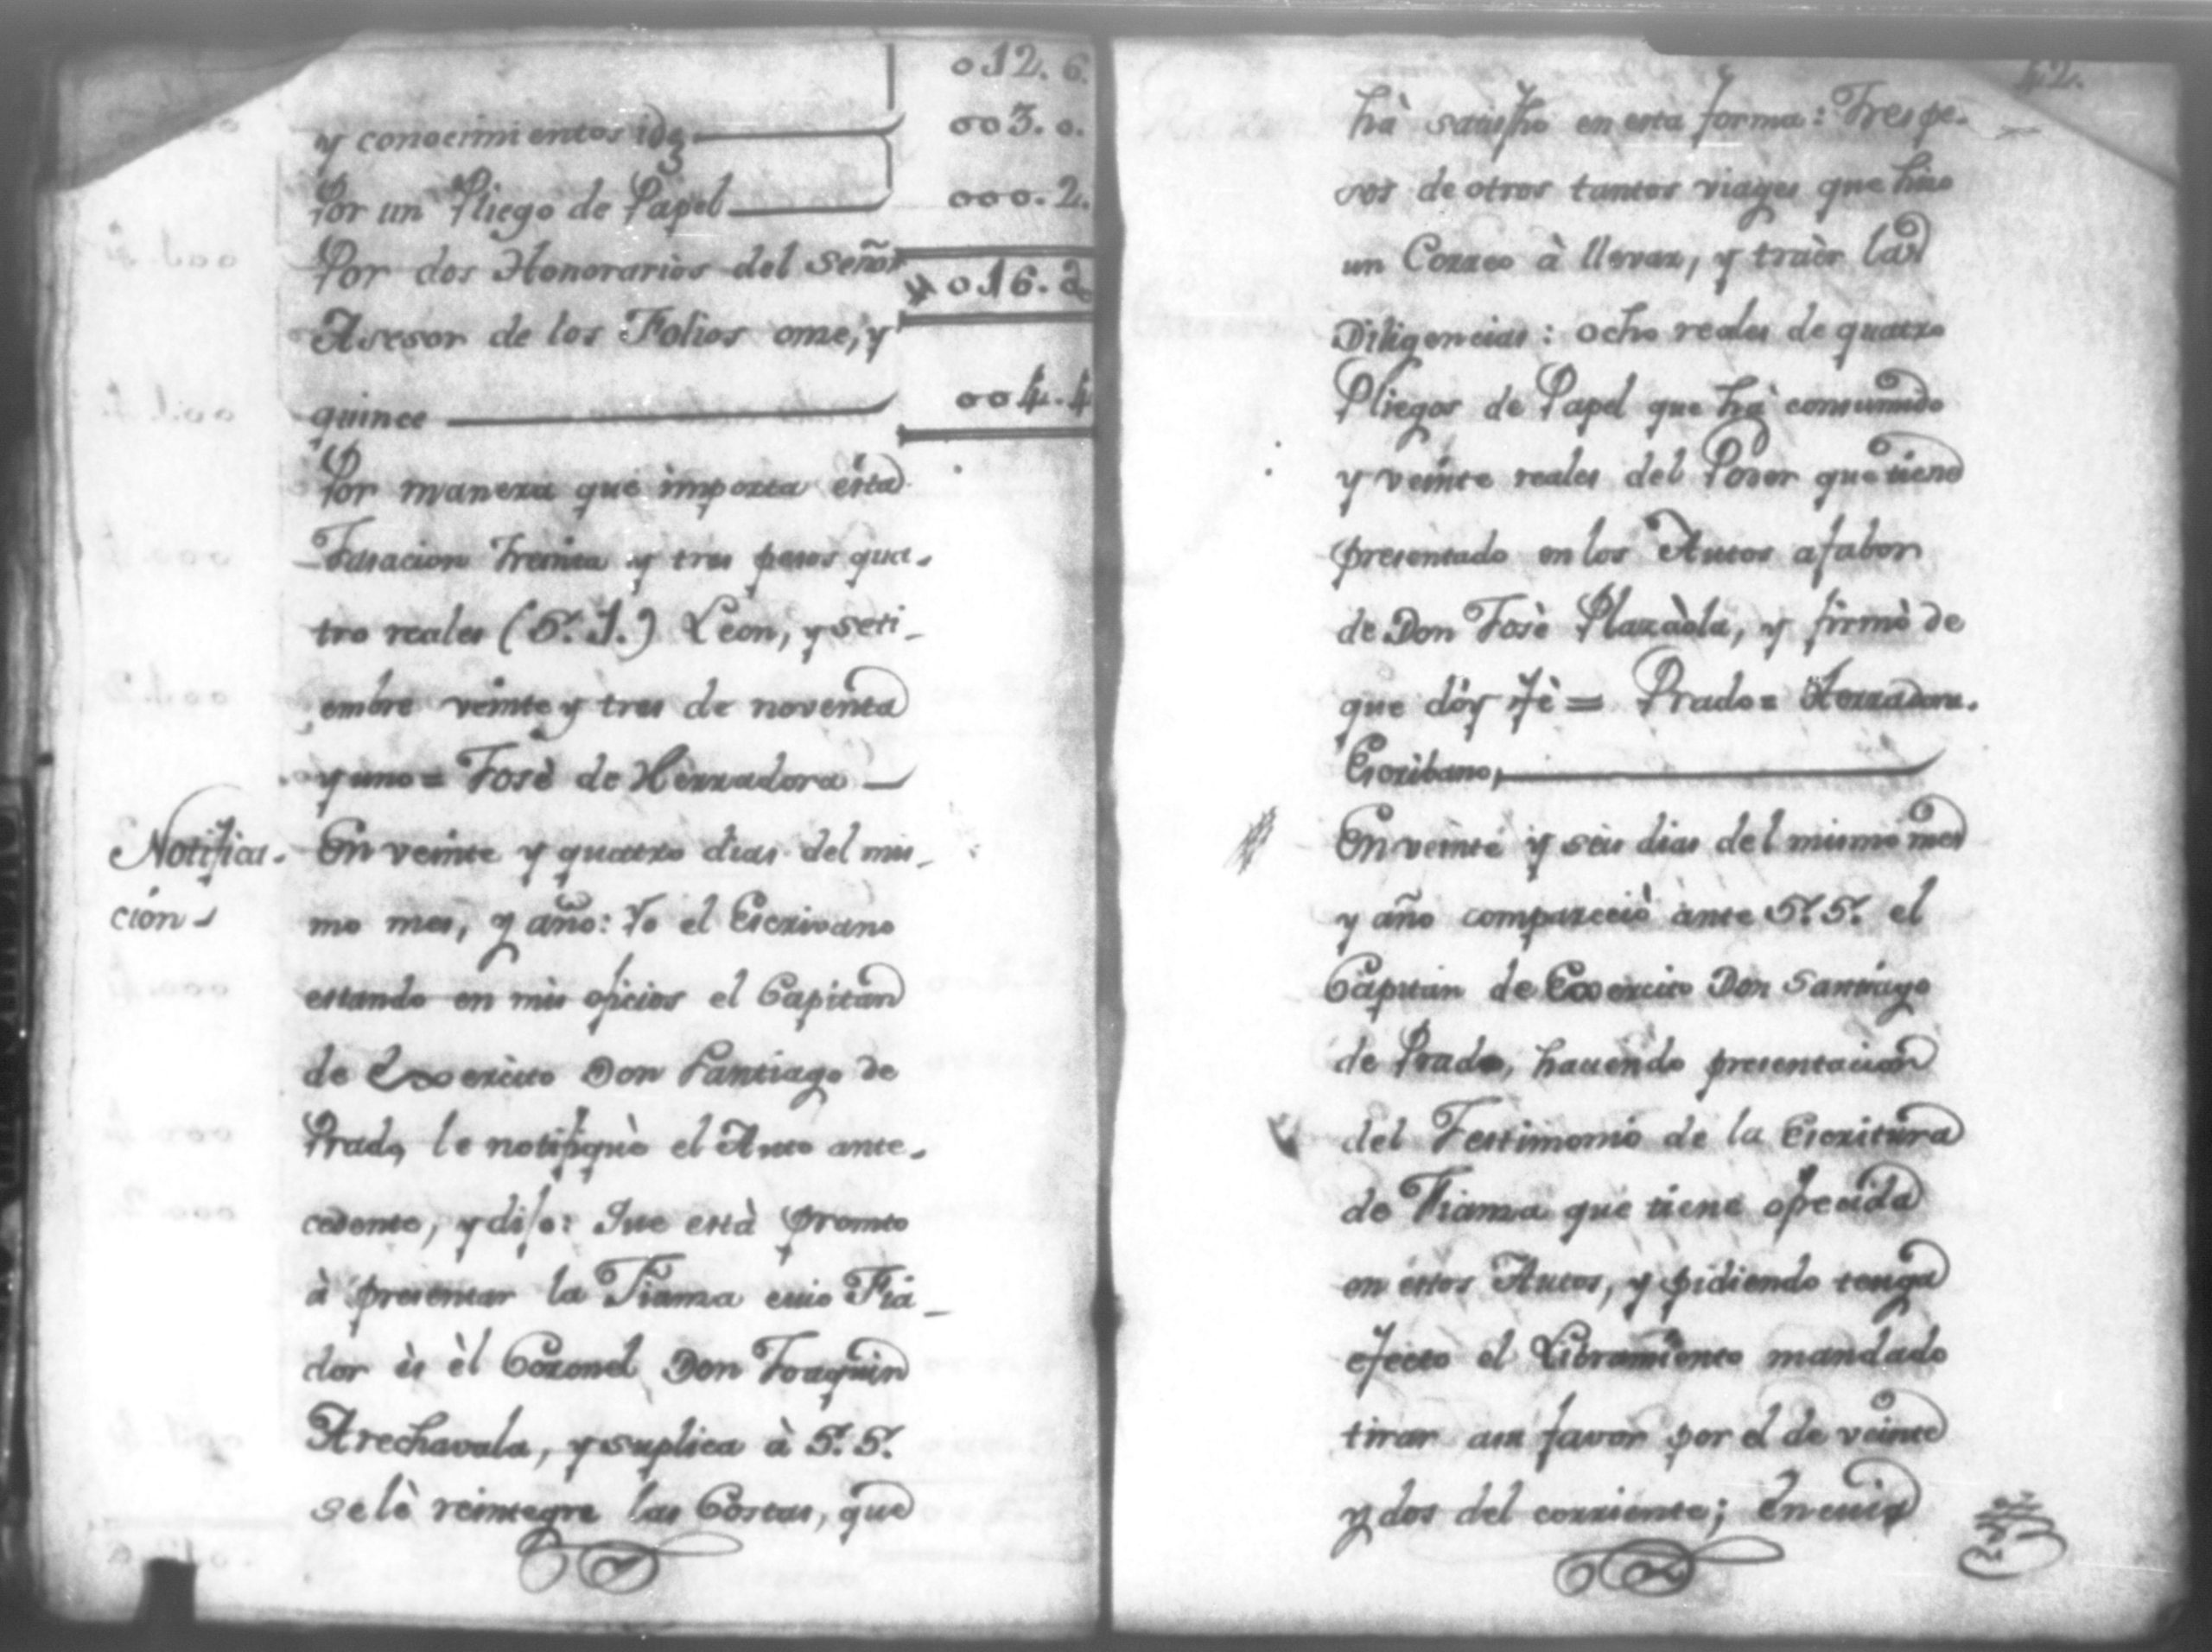 012. 6.
y conocimientos idz 003. 0.
Por un Pliego de Papel 000. 2.
Por dos Honorarios del Señor 016. 0
Asesor de los Folios onse, y
quince 004. 4
Por manera que importa ésta
Tasacion Treinta y tres pesos qua-
tro reales (S. I.) Leon, y seti-
embre veinte y tres de noventa
y uno = Josè de Herradora
Notifica-
ción
En veinte y quatro dias del mis-
mo mes, y año: Yo el Escrivano
estando en mis oficios el Capitan
de Exercito Don Santiago de
Prado, le notifiquè el Auto ante-
cedente, y dijo: Que està promto
à presentar la Fianza cuio Fia-
dor ès èl Coronel Don Joaquin
Arechavala, y suplica à S. S.
se lè reintegre las Costas, que
52.
hà satisfho en esta forma: Tres pe-
sos de otros tantos viages que hizo
un Correo à llevar, y traèr las
Diligencias: ocho reales de quatro
Pliegos de Papel que hà consumido
y veinte reales del Poder que tiene
presentado en los Autos a fabor
de Don Josè Plazàola, y firmò de
que dóy Fè = Prado = Herradora.
Escribano,
En veinte y seis dias del mismo mes
y año compareciò ante S. S. el
Capitan de Exercito Don Santiago
de Prado, haciendo presentacion
del Testimonio de la Escritura
de Fianza que tiene ofrecida
en éstos Autos, y pidiendo tenga
efecto el Libramiento mandado
tirar asu favor por el de veinte
y dos del corriente; En cuia